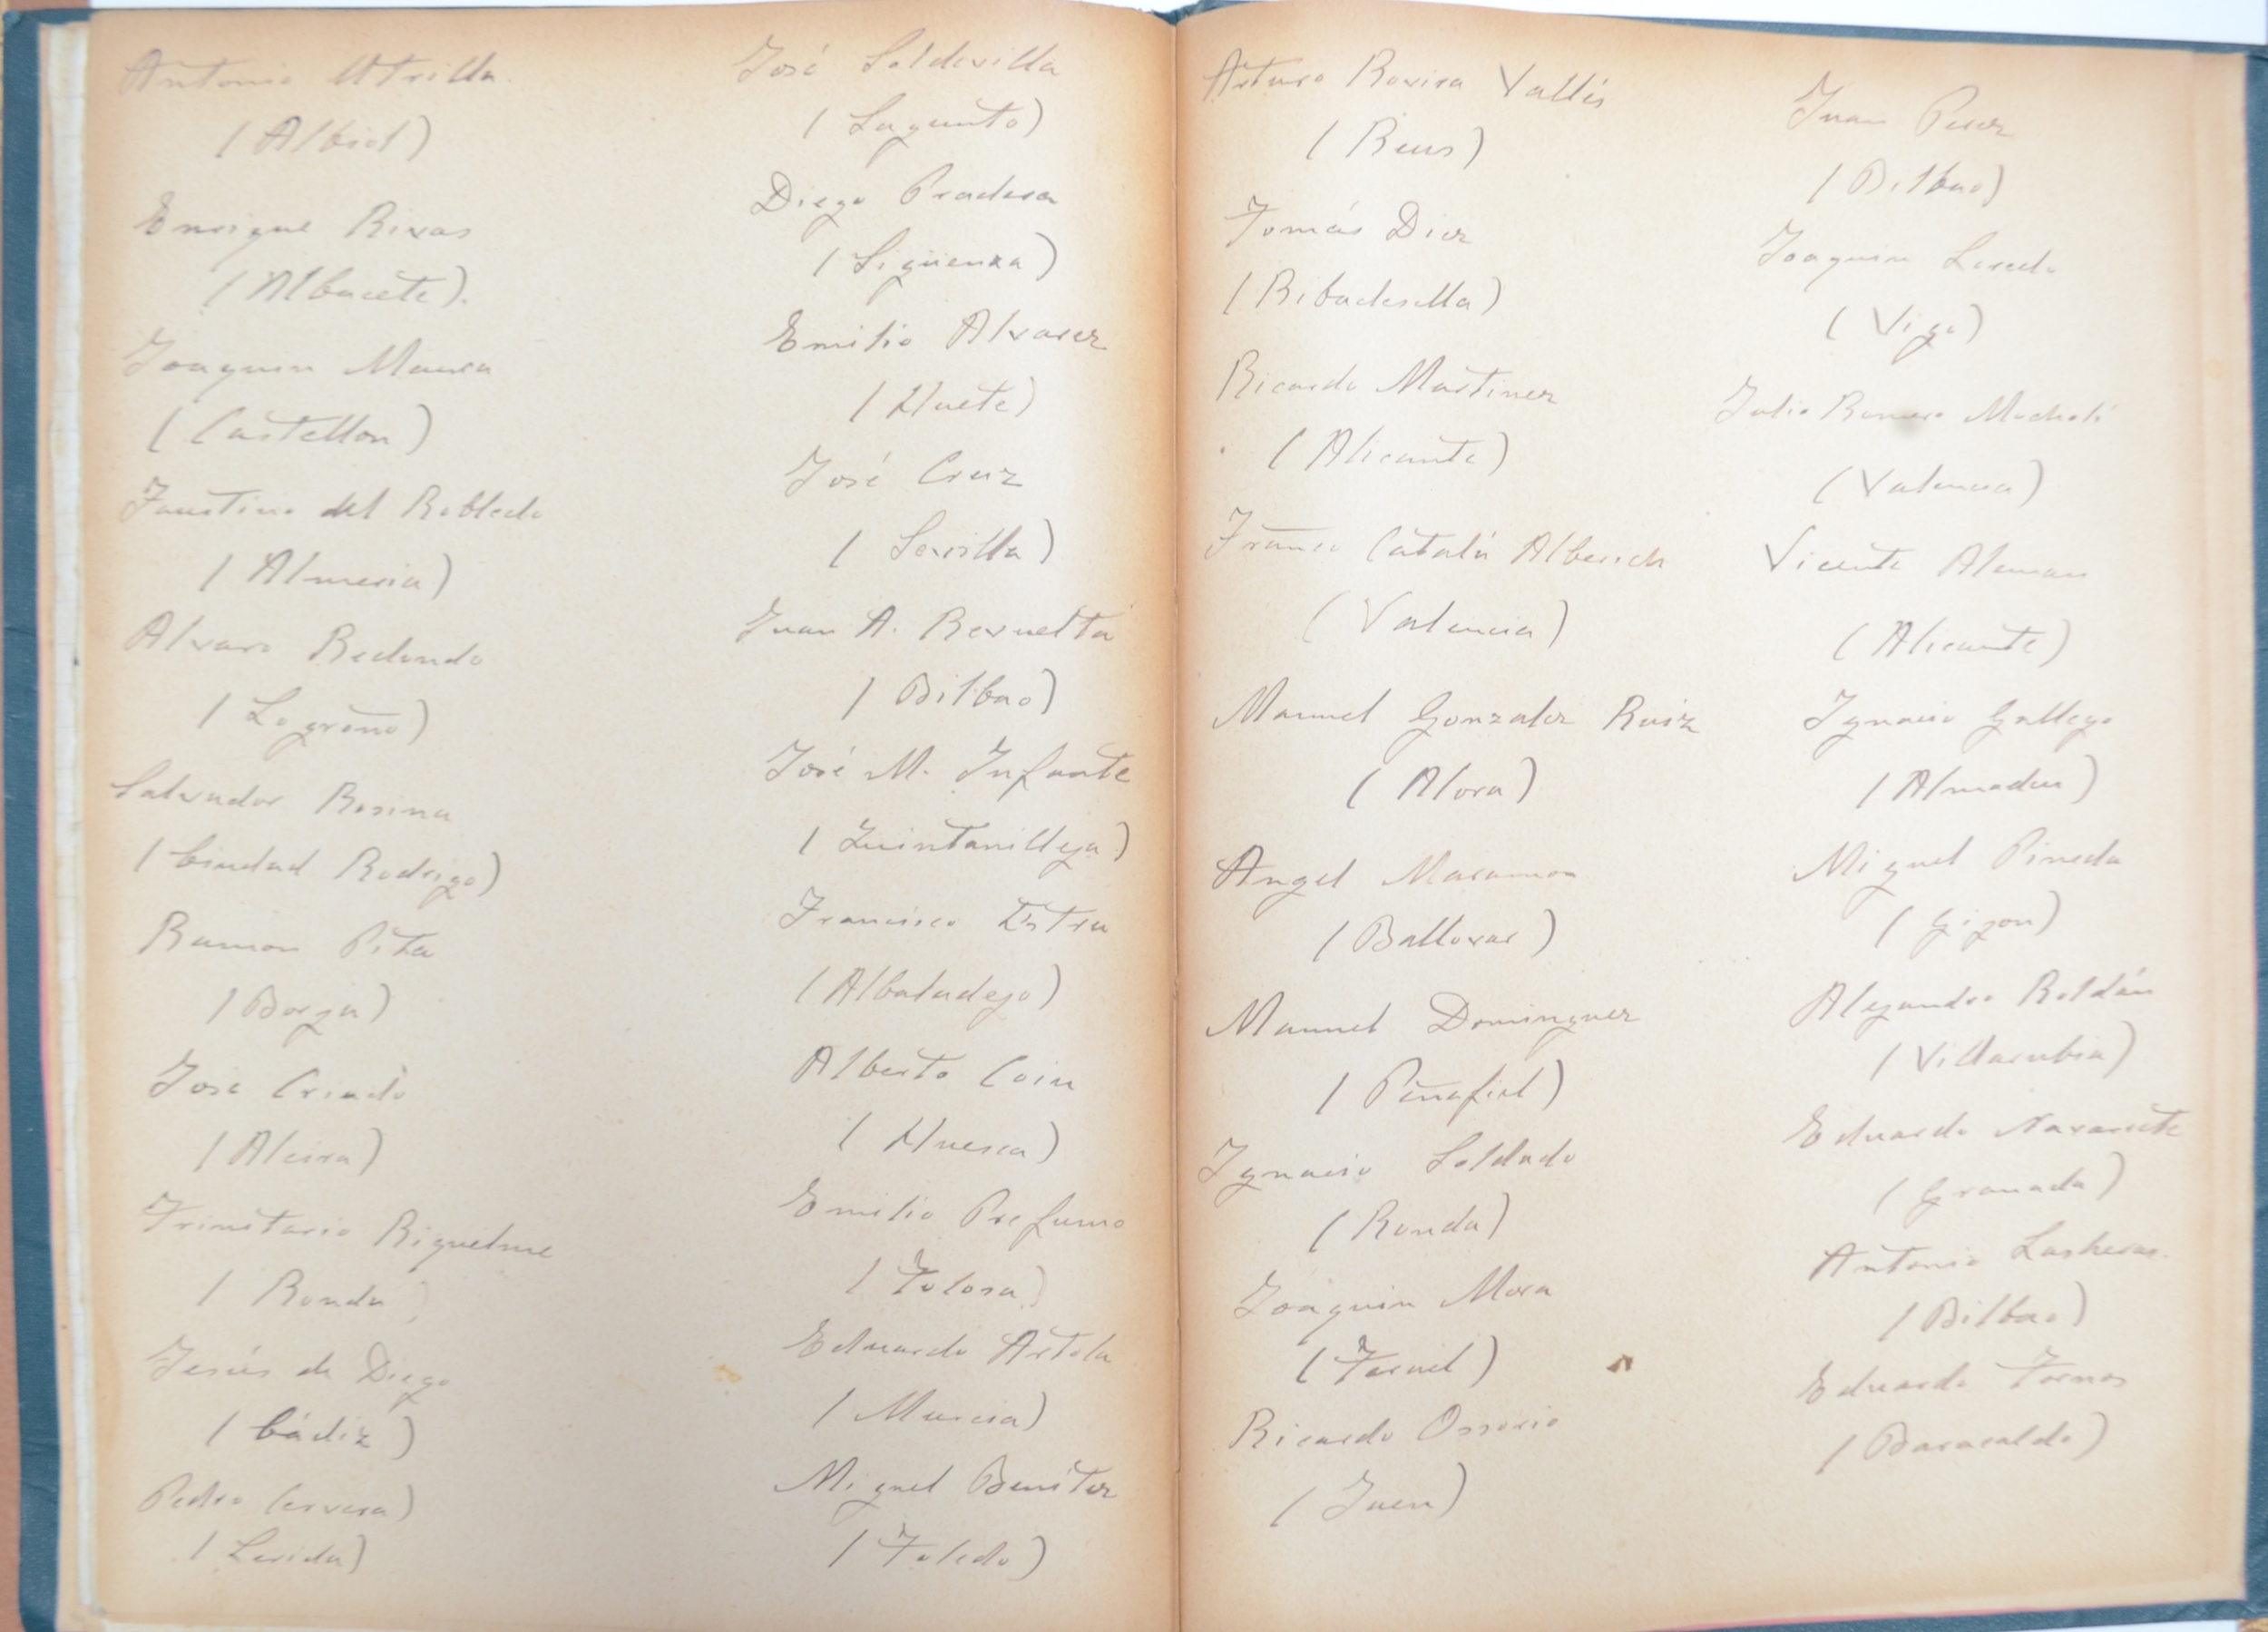 Antonio Utrilla
(Albiol)
Enrique Rivas
(Albacete).
Joaquin Maura
(Castellon)
Faustino del Robledo
(Almeria)
Alvaro Redondo
(Logroño)
Salvador Rosina
(Ciudad Rodrigo)
Ramon Pita
(Borja)
José Criado
(Alcira)
Trinitario Riquelme
(Ronda)
Jesús de Diego
(Cádiz)
Pedro Cervera)
(Lerida)
José Soldevilla
(Sagunto)
Diego Pradera
(Sigüenza)
Emilio Alvarez
(Huete)
José Cruz
(Sevilla)
Juan A. Revuelta
(Bilbao)
José M. Infante
(Quintanilleja)
Francisco
(Albaladejo)
Alberto Coin
(Huesca)
Emilio Prefumo
(Tolosa)
Eduardo Artola
(Murcia)
Miguel Benitez
(Toledo)
Arturo Rovira Vallés
(Reus)
Tomás Diez
(Ribadesella)
Ricardo Martinez
(Alicante)
Franco Catalá Alberich
(Valencia)
Manuel Gonzalez Ruiz
(Alora)
Angel
(Ballovar)
Manuel Dominguez
(Peñafiel)
Ignacio Soldado
(Ronda)
Joaquin Mora
(Teruel)
Ricardo Ossorio
(Jaen)
Juan
(Bilbao)
Joaquin
(Vigo)
Julio Romero Macholí
(Valencia)
Vicente Aleman
(Alicante)
Ignacio Gallego
(Almaden)
Miguel Pineda
(Gijon)
Alejandro Roldán
(Villarubia)
Eduardo Navarrete
(Granada)
Antonio Lasheras.
(Bilbao)
Eduardo Tornos
(Baracaldo)